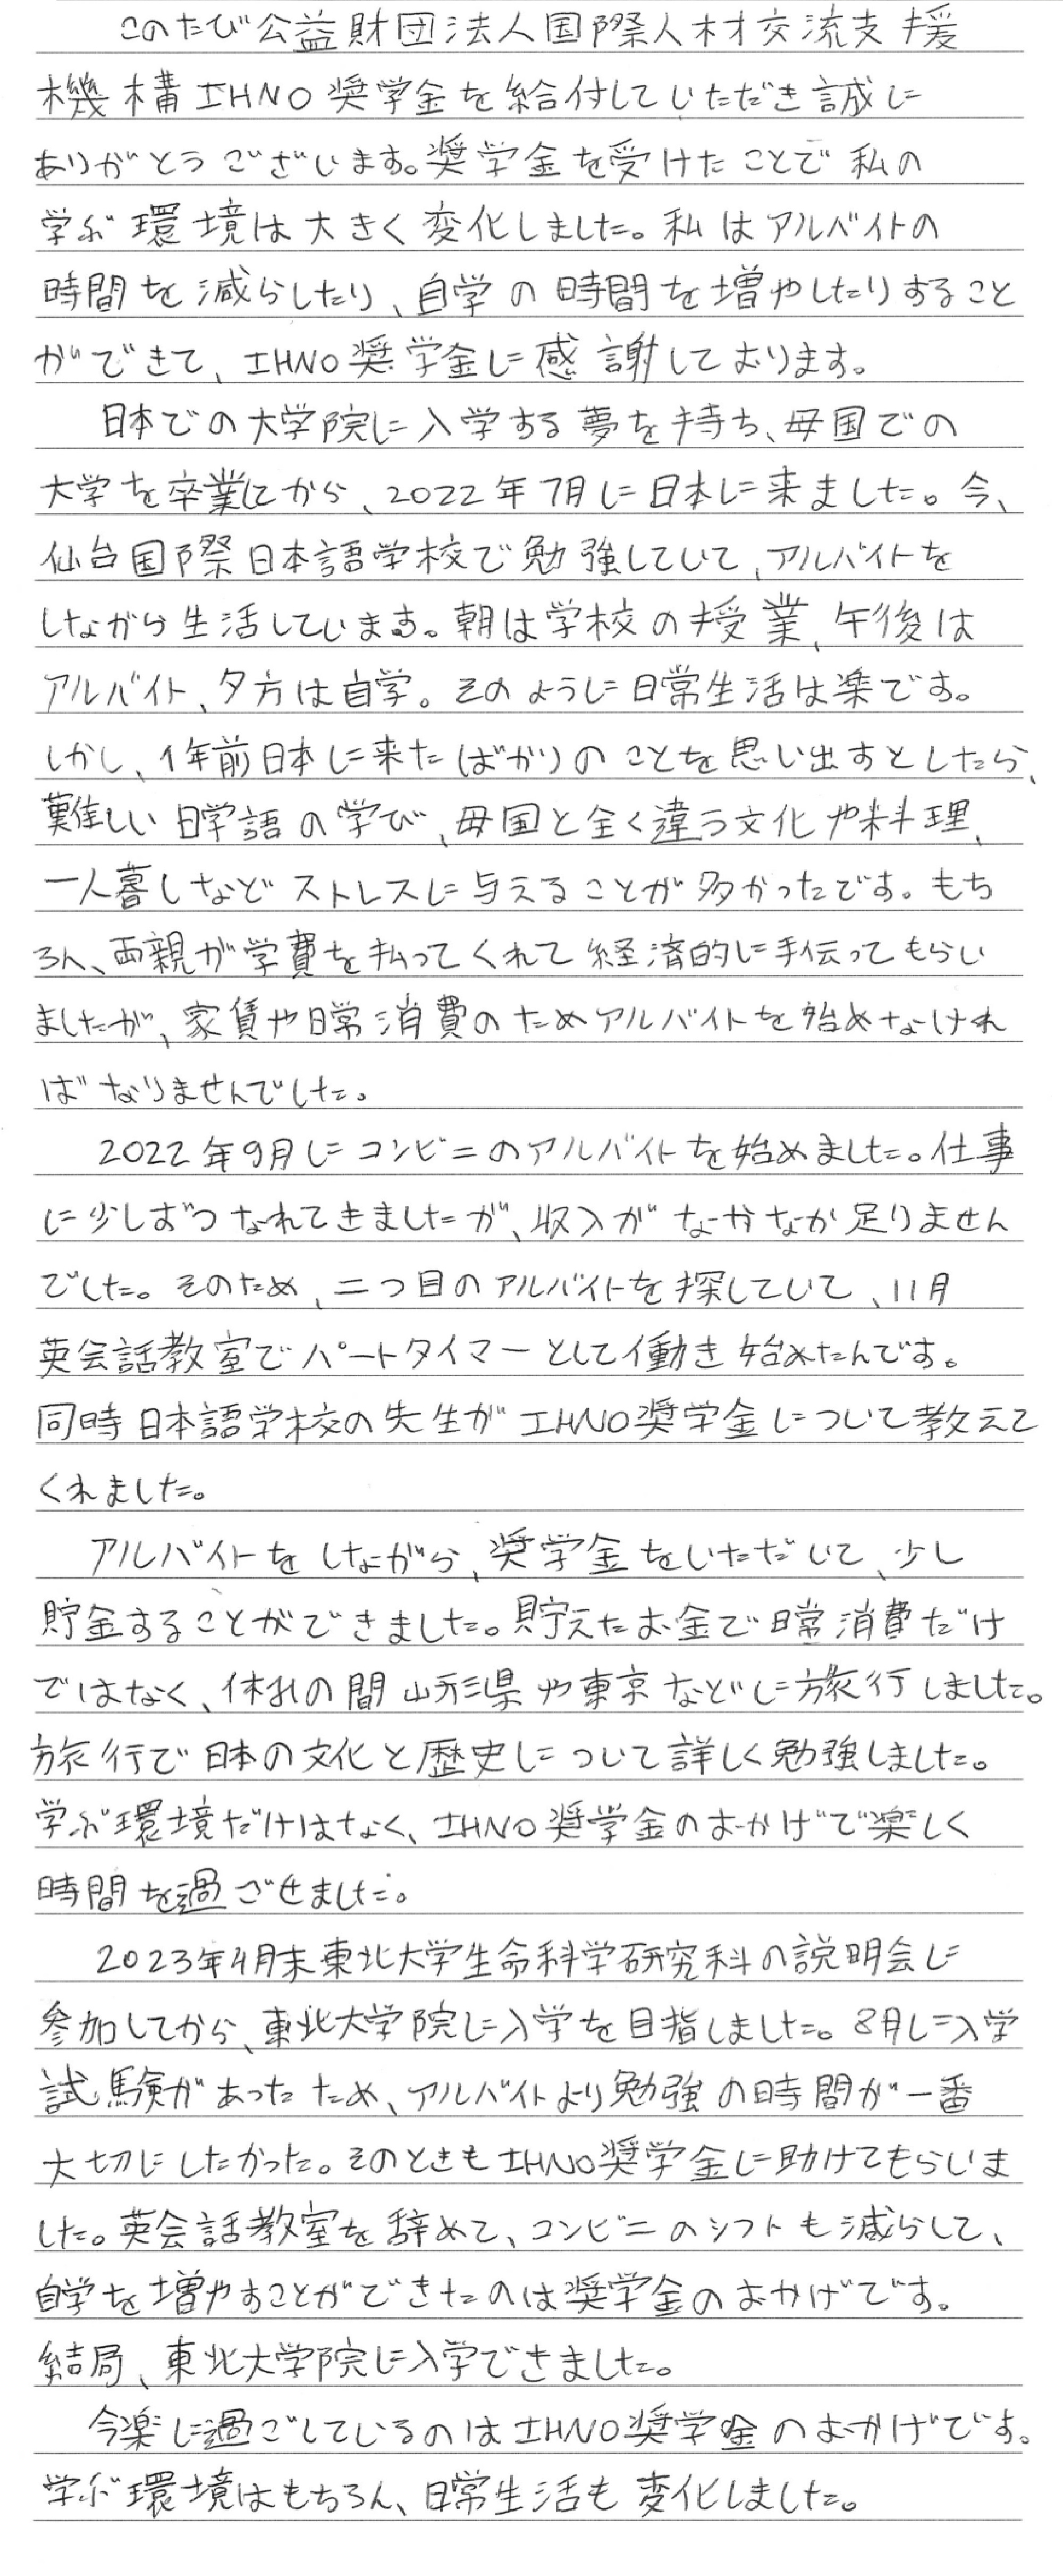 このたび公益財団法人国際人材交流支援
機構IHNO奨学金を給付していただき誠に
ありがとうございます。奨学金を受けたことで私の
学ぶ環境は大きく変化しました。私はアルバイトの
時間を減らしたり、自学の時間を増やしたりすること
ができて、IHNO奨学金に感謝しております。
日本での大学院に入学する夢を持ち、母国での
大学を卒業してから、2022年7月に日本に来ました。今、
仙台国際日本語学校で勉強していて、アルバイトを
しながら生活しています。朝は学校の授業、午後は
アルバイト、夕方は自学。そのように日常生活は楽です。
しかし、1年前日本に来たばかりのことを思い出すとしたら、
難しい日学語の学び、母国と全く違う文化や料理、
一人暮しなどストレスに与えることが多かったです。もち
ろん、両親が学費を払ってくれて経済的に手伝ってもらい
ましたが、家賃や日常消費のためアルバイトを始めなけれ
ばなりませんでした。
2022年9月にコンビニのアルバイトを始めました。仕事
に少しずつなれてきましたが、収入がなかなか足りません
でした。そのため、二つ目のアルバイトを探していて、11月
英会話教室でパートタイマーとして働き始めたんです。
同時日本語学校の先生がIHNO奨学金について教えて
くれました。
アルバイトをしながら、奨学金をいただいて、少し
貯金することができました。貯えたお金で日常消費だけ
ではなく、休みの間山形県や東京などに旅行しました。
旅行で日本の文化と歴史について詳しく勉強しました。
学ぶ環境だけはなく、IHNO奨学金のおかげで楽しく
時間を過ごせました。
2023年4月末東北大学生命科学研究科の説明会に
参加してから、東北大学院に入学を目指しました。8月に入学
試験があったため、アルバイトより勉強の時間が一番
大切にしたかった。そのときもIHNO奨学金に助けてもらいま
した。英会話教室を辞めて、コンビニのシフトも減らして、
自学を増やすことができたのは奨学金のおかげです。
結局、東北大学院に入学できました。
今楽に過ごしているのはIHNO奨学金のおかげです。
学ぶ環境はもちろん、日常生活も変化しました。